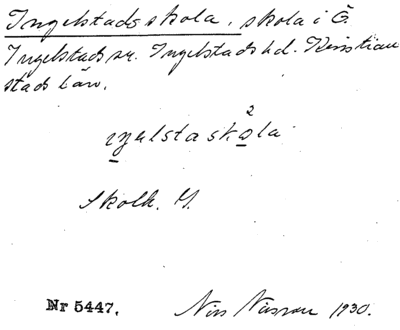 Ingelstads skola, skola i Ö.
Ingelstads sn. Ingelstads hd. Kristian
stads län.
2
iŋelstaskola
Skolh. M.
Nr 5447. Nils Nilsson 1930.